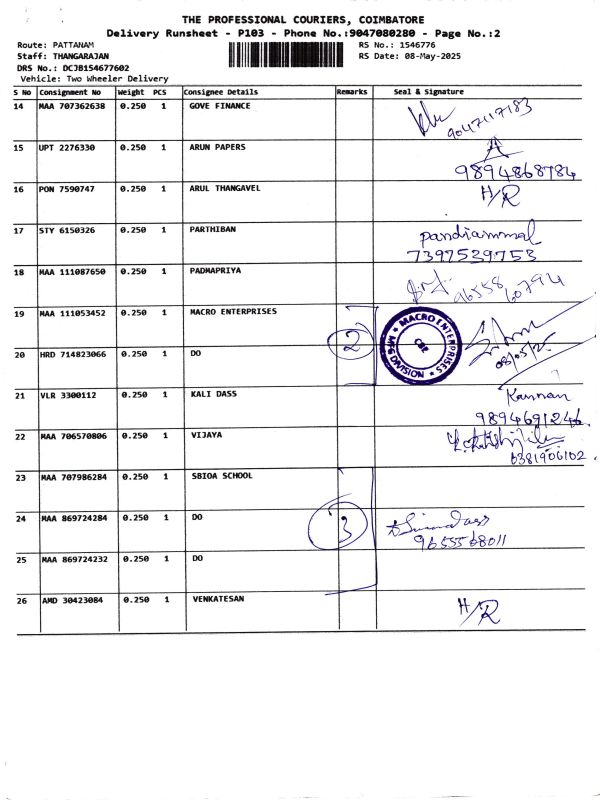 THE PROFESSIONAL COURIERS, COIMBATORE
Delivery Runsheet - P103 - Phone No.:9047080280 - Page No.:2
Route: PATTANAM RS No.: 1546776
Staff: THANGARAJAN RS Date: 08-May-2025
DRS No.: DCJB154677602
Vehicle: Two Wheeler Delivery
S No Consignment No Weight PCS Consignee Details Remarks Seal & Signature
14 MAA 707362638 0.250 1 GOVE FINANCE 9047117183
15 UPT 2276330 0.250 1 ARUN PAPERS 9894868784
16 PON 7590747 0.250 1 ARUL THANGAVEL H/R
17 STY 6150326 0.250 1 PARTHIBAN pandiammal
7397539753
18 MAA 111087650 0.250 1 PADMAPRIYA 96558 60794
19 MAA 111053452 0.250 1 MACRO ENTERPRISES
2
MACRO ENTERPRISES
CBE
MFG DIVISION
08/05/25
20 HRD 714823066 0.250 1 DO
21 VLR 3300112 0.250 1 KALI DASS Kannan
9894691246
22 MAA 706570806 0.250 1 VIJAYA 6381906102
23 MAA 707986284 0.250 1 SBIOA SCHOOL
24 MAA 869724284 0.250 1 DO 3
9655568011
25 MAA 869724232 0.250 1 DO
26 AMD 30423084 0.250 1 VENKATESAN H/R